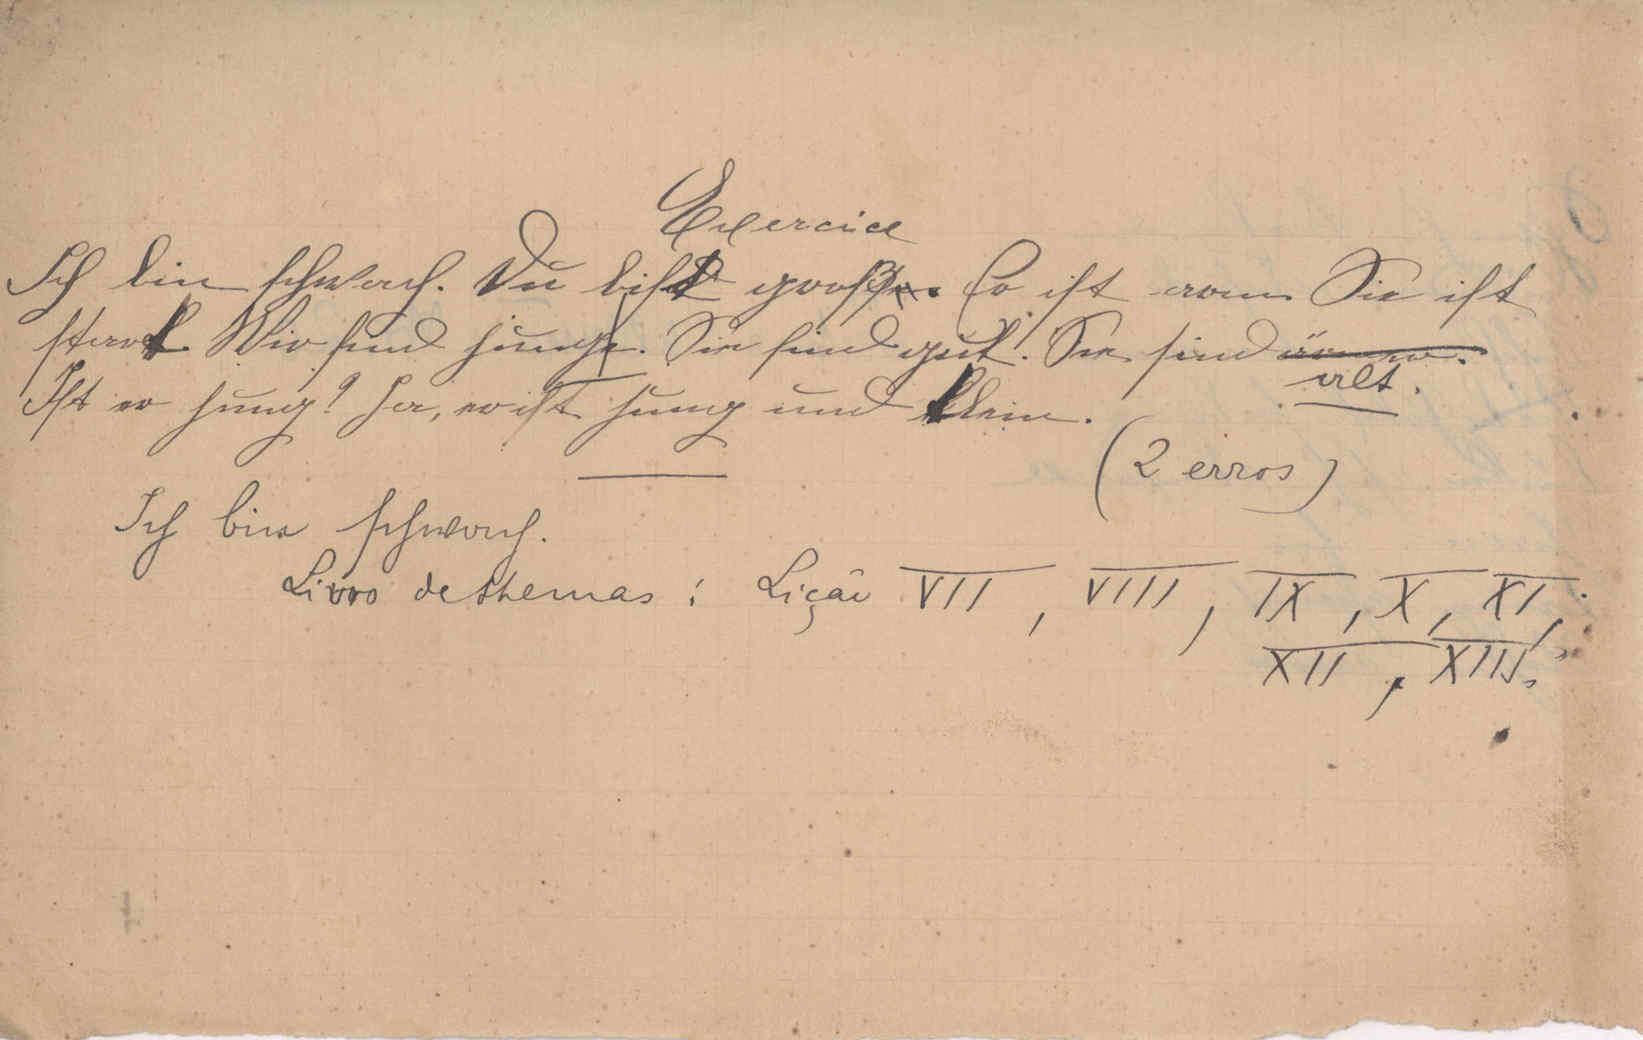 Exercice
Ich bin schwach. Du bist groß. Er ist arm Sie ist
stark. Wir sind jung. Sie sind gut. Sie sind ärmer.
alt.
Ist er jung? Ja, er ist jung und klein.
(2 erros)
Ich bin schwach.
Livro de themas: Lição VII, VIII, IX, X, XI,
XII, XIII.